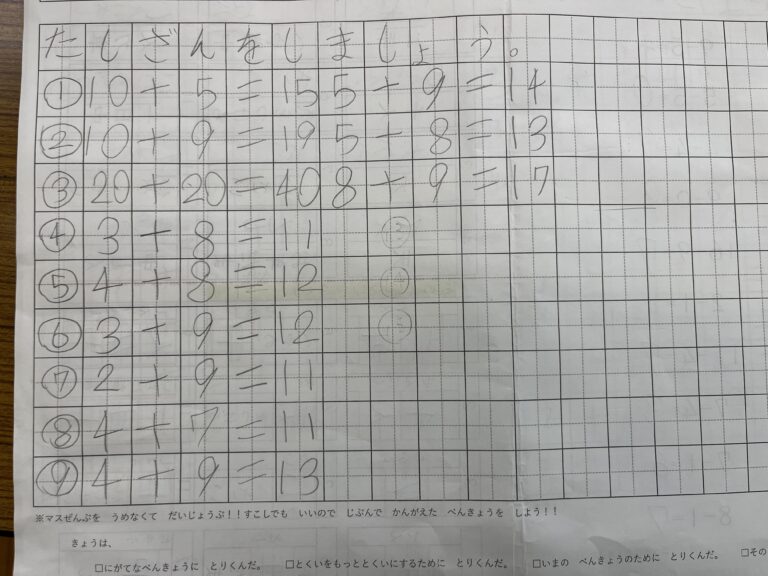 たしざんをしましょう。
①10+5=15 5+9=14
②10+9=19 5+8=13
③20+20=40 8+9=17
④3+8=11
⑤4+8=12
⑥3+9=12
⑦2+9=11
⑧4+7=11
⑨4+9=13
※マスぜんぶを うめなくて だいじょうぶ！！すこしでも いいので じぶんで かんがえた べんきょうを しよう！！
きょうは、
□にがてなべんきょうに とりくんだ。 □とくいをもっととくいにするために とりくんだ。 □いまの べんきょうのために とりくんだ。 □その